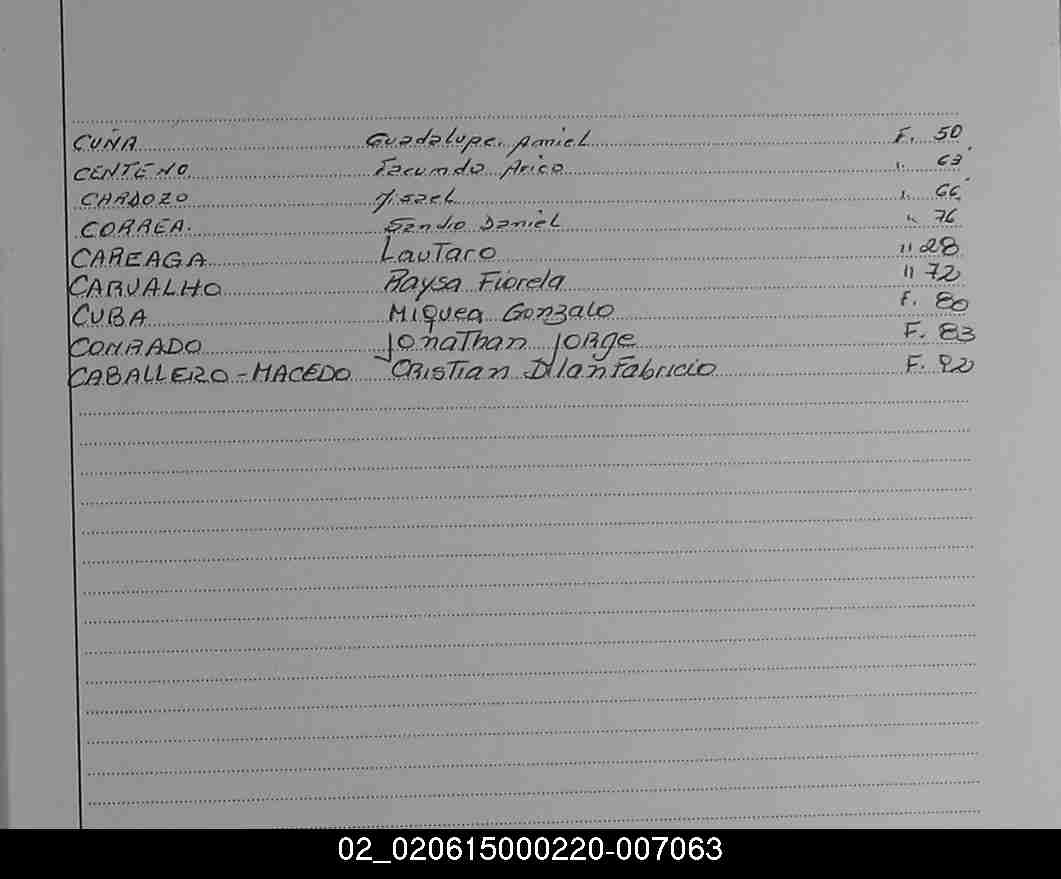 CUÑA Guadalupe Amiel F. 50
CENTENO Facundo Arico " 63
CARDOZO Misael " 66
CORREA. Sandio Daniel " 76
CAREAGA Lautaro " 28
CARVALHO Raysa Fiorela " 72
CUBA Miquea Gonzalo F. 80
CONRADO Jonathan Jorge F. 83
CABALLERO-MACEDO CRISTIAN DIlan Fabricio F. 92
02_020615000220-007063